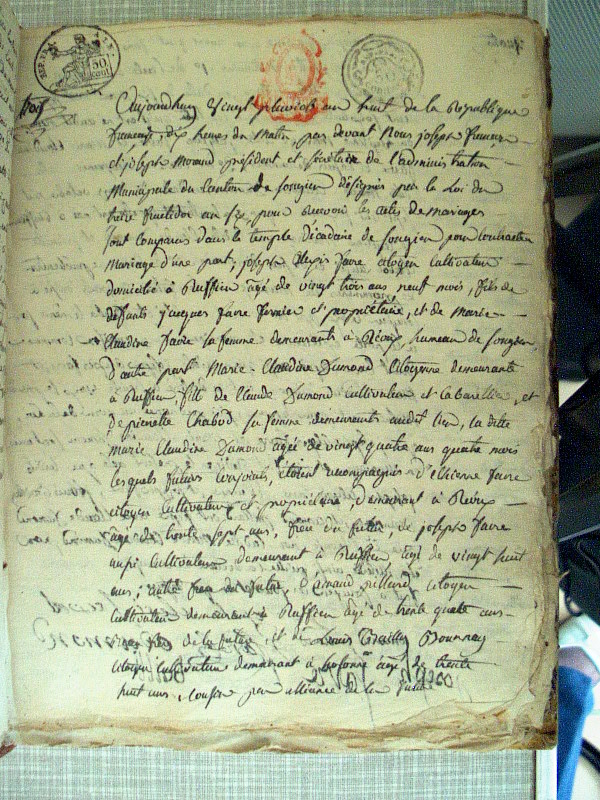 REP. FRA.
50 cent
Aujourdhuy vingt pluviose an huit de la Republique
francaise, dix heures du matin, par devant Nous joseph
et joseph Morand président et sécrétaire de l'administration
Municipale du Canton de songieu désignés par la Loi du
fructidor an six, pour Recevoir les actes de mariages
sont comparus dans le temple décadaire de songieu pour contracter
Mariage d'une part, joseph alexis faure citoyen cultivateur
domicilié à Ruffieu agé de vingt trois ans neuf mois, fils de
défunts jacques faure fermier et propriétaire, et de marie
Claudine faure sa femme demeurants à hameau de songieu
D'autre part Marie Claudine Dumond Citoyenne demeurante
à Ruffieu, fille de Claude Dumond cultivateur et cabarettier, et
de pierrette Chabod sa femme demeurants audit lieu, la ditte
marie Claudine Dumond agée de vingt quatre ans quatre mois
lesquels futurs conjoints, étoient accompagnés d'Etienne faure
citoyen cultivateur et propriétaire, demeurant à
agé de trente sept ans, frère du futur, de joseph faure
aussi cultivateur demeurant à Ruffieu agé de vingt huit
ans, autre frere du futur, d' citoyen
cultivateur demeurant à Ruffieu agé de trente quatre ans
de la future, et de Louis
citoyen cultivateur demeurant à agé de trente
huit ans, cousin par alliance de la future